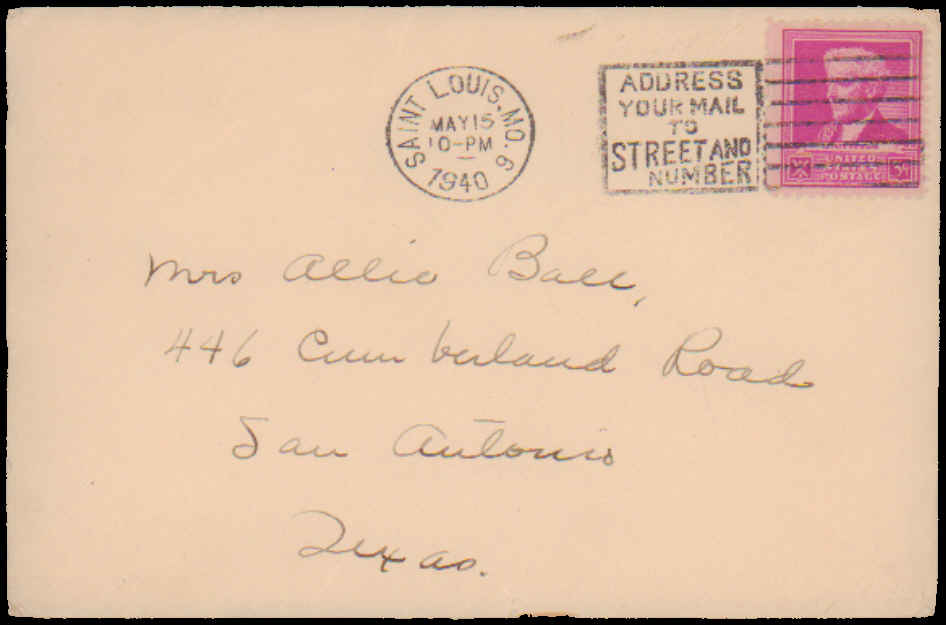 SAINT LOUIS, MO. 6
MAY 15
10-PM
1940
ADDRESS
YOUR MAIL
TO
STREET AND
NUMBER
UNITED
STATES
POSTAGE
3¢
Mrs Allie Ball,
446 Cumberland Road
San Antonio
Texas.